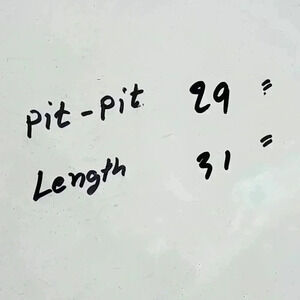 Pit-Pit 29"
Length 31"